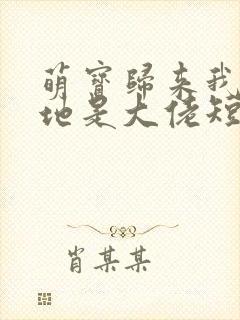 萌寳歸来我
地是大佬短
肖某某